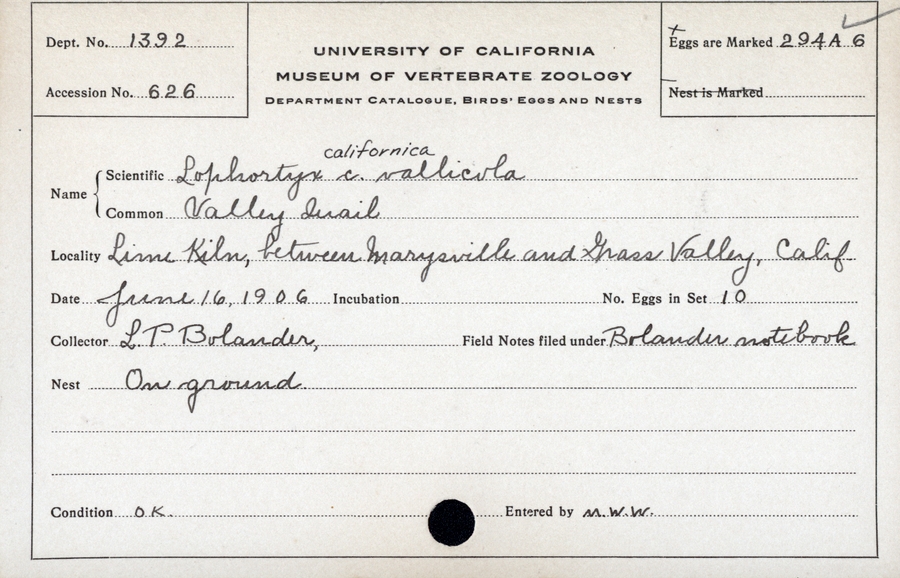 Dept. No. 1392
Accession No. 626
UNIVERSITY OF CALIFORNIA
MUSEUM OF VERTEBRATE ZOOLOGY
DEPARTMENT CATALOGUE, BIRDS' EGGS AND NESTS
Eggs are Marked 294A 6
Nest is Marked
californica
Name Scientific Lophortyx c. vallicola
Common Valley Quail
Locality Lime Kiln, between Marysville and Grass Valley, Calif
Date June 16, 1906 Incubation No. Eggs in Set 10
Collector L.P. Bolander, Field Notes filed under Bolander notebook
Nest On ground
Condition OK. Entered by M.W.W.